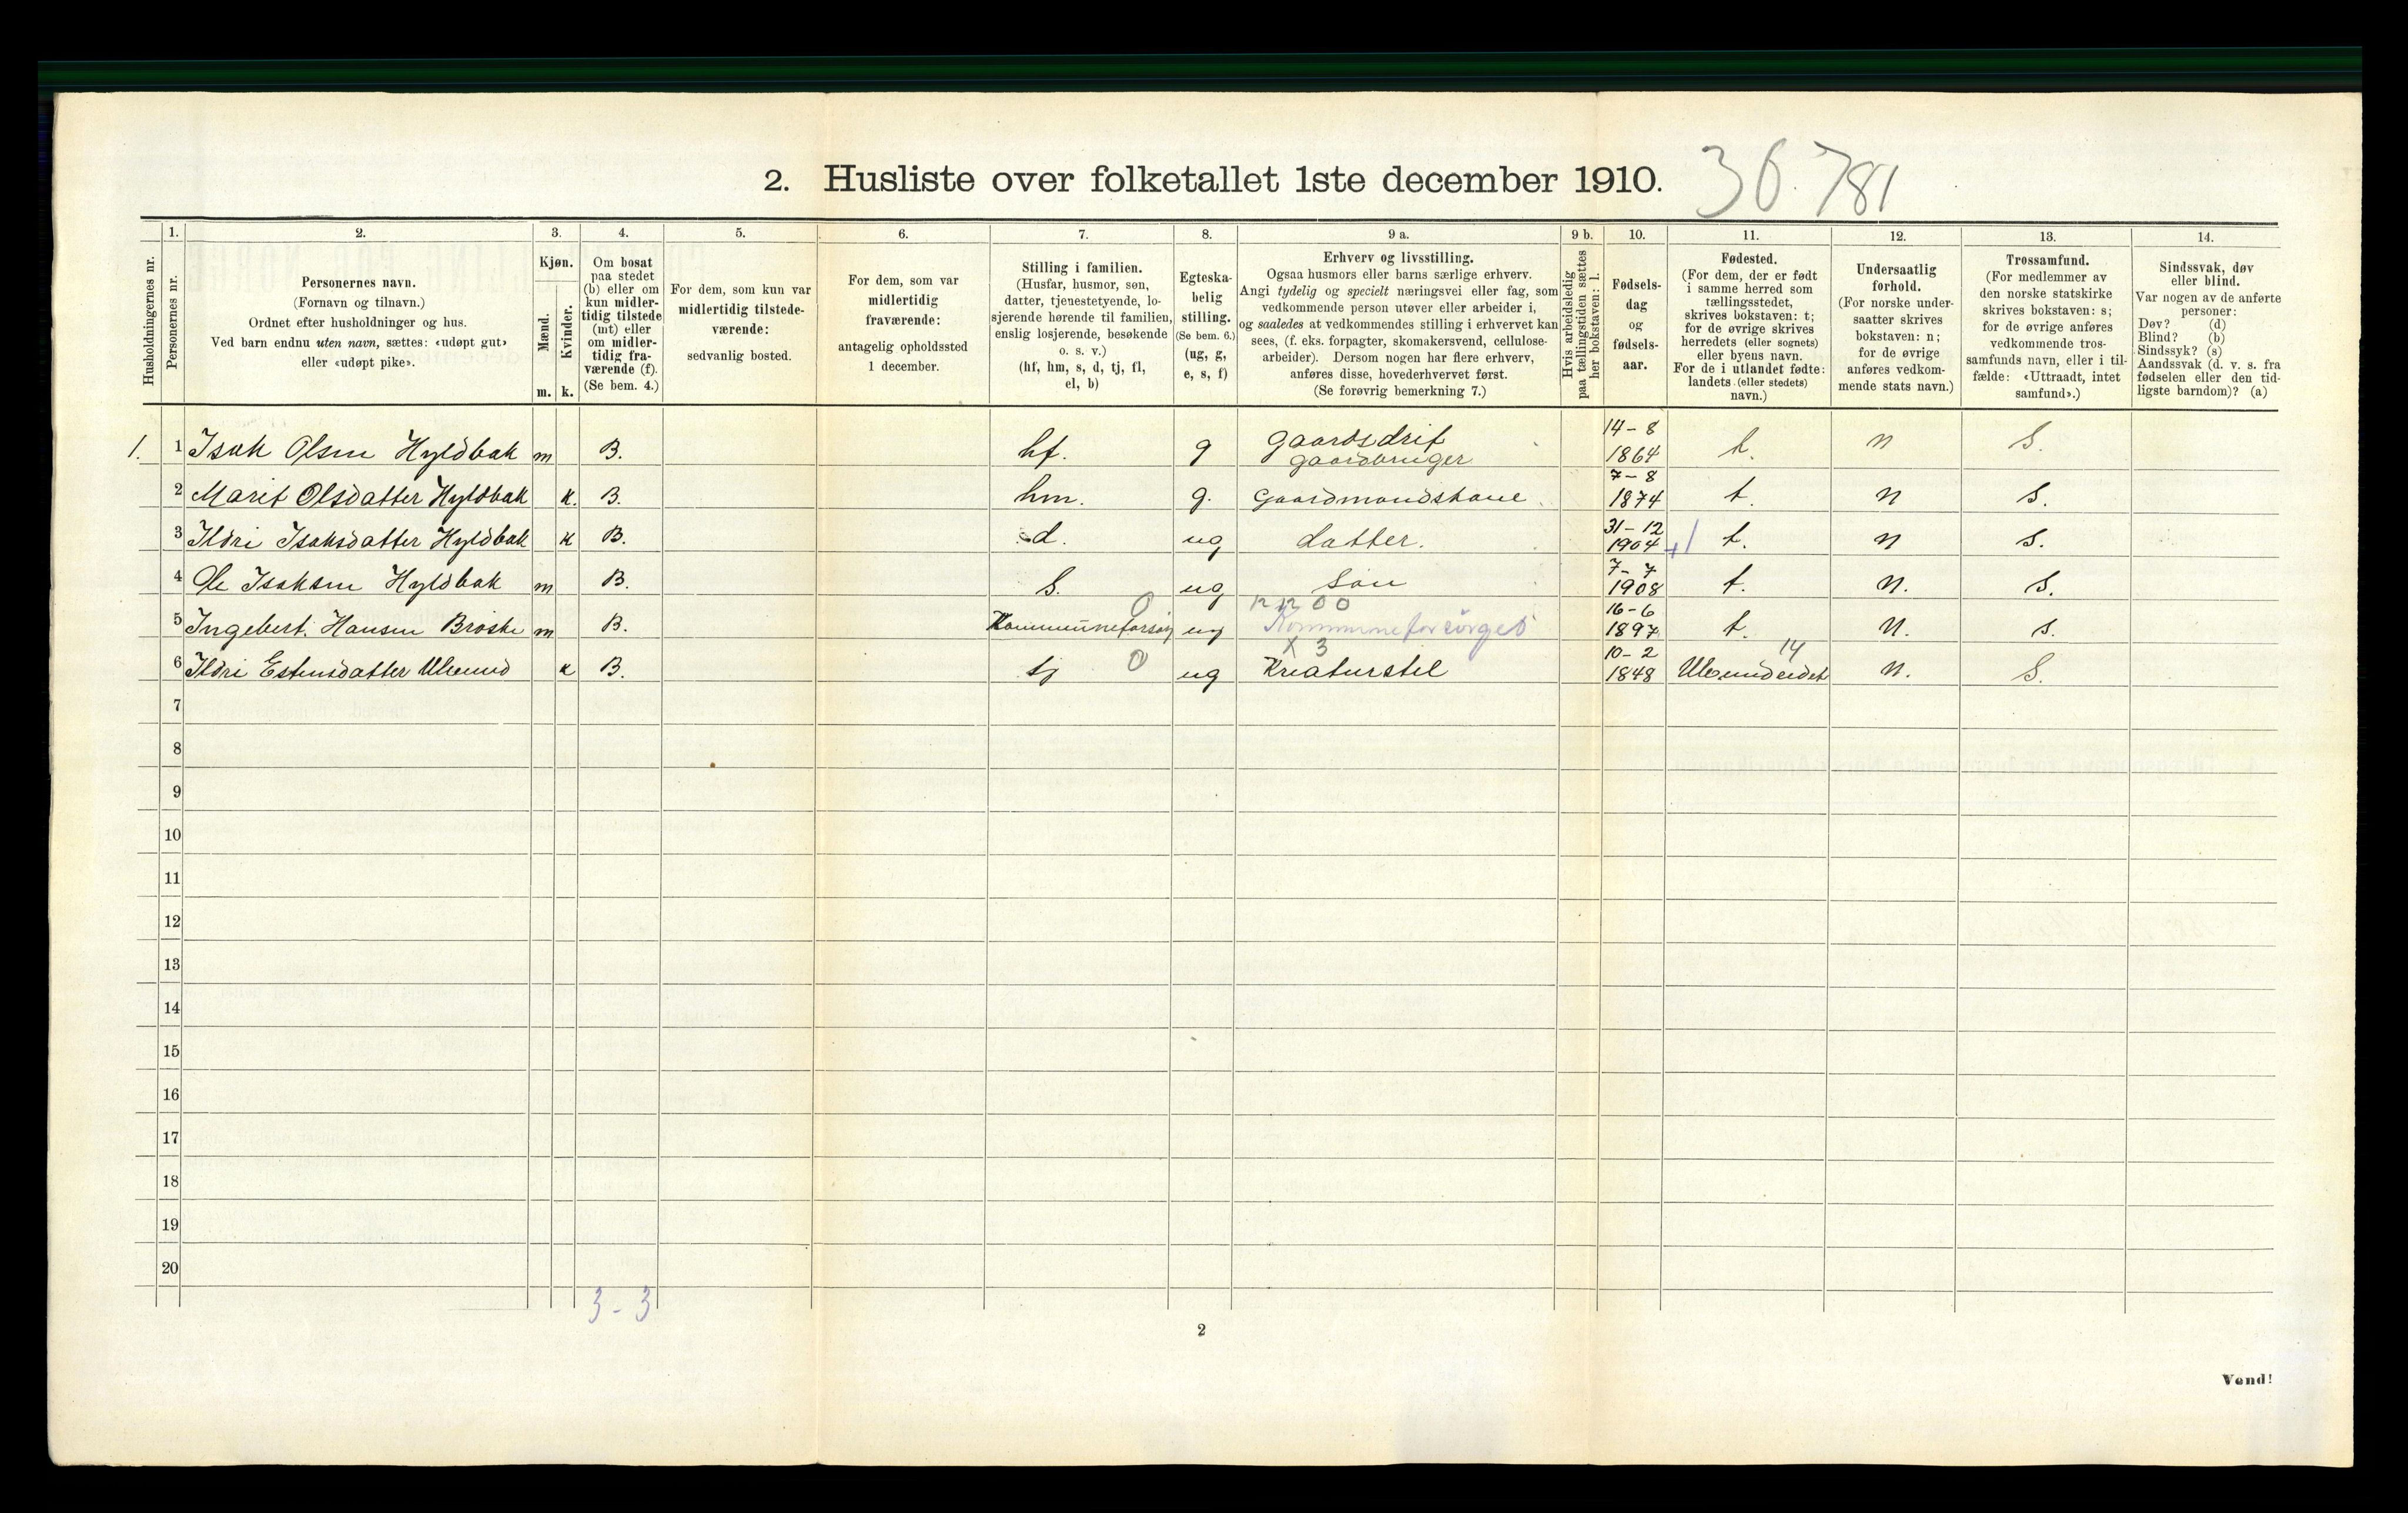 2. Husliste over folketallet 1ste december 1910. 36.781
Husholdningernes nr.
1.
Personernes nr.
2.
Personernes navn.
(Fornavn og tilnavn.)
Ordnet efter husholdninger og hus.
Ved barn endnu uten navn, sættes: «udøpt gut»
eller «udøpt pike».
3.
Kjøn.
Mænd.
m.
Kvinder.
k.
4.
Om bosat
paa stedet
(b) eller om
kun midler-
tidig tilstede
(mt) eller
om midler-
tidig fra-
værende (f).
(Se bem. 4.)
5.
For dem, som kun var
midlertidig tilstede-
værende:
sedvanlig bosted.
6.
For dem, som var
midlertidig
fraværende:
antagelig opholdssted
1 december.
7.
Stilling i familien.
(Husfar, husmor, søn,
datter, tjenestetyende, lo-
sjerende hørende til familien,
enslig losjerende, besøkende
o. s. v.)
(hf, hm, s, d, tj, fl,
el, b)
8.
Egteska-
belig
stilling.
(Se bem. 6.)
(ug, g,
e, s, f)
9 a.
Erhverv og livsstilling.
Ogsaa husmors eller barns særlige erhverv.
Angi tydelig og specielt næringsvei eller fag, som
vedkommende person utøver eller arbeider i,
og saaledes at vedkommendes stilling i erhvervet kan
sees, (f. eks. forpagter, skomakersvend, cellulose-
arbeider). Dersom nogen har flere erhverv,
anføres disse, hovederhvervet først.
(Se forøvrig bemerkning 7.)
9 b.
Hvis arbeidsledig
paa tællingstiden sættes
her bokstaven: l.
10.
Fødsels-
dag
og
fødsels-
aar.
11.
Fødested.
(For dem, der er født
i samme herred som
tællingsstedet,
skrives bokstaven: t;
for de øvrige skrives
herredets (eller sognets)
eller byens navn.
For de i utlandet fødte:
landets (eller stedets)
navn.)
12.
Undersaatlig
forhold.
(For norske under-
saatter skrives
bokstaven: n;
for de øvrige
anføres vedkom-
mende stats navn.)
13.
Trossamfund.
(For medlemmer av
den norske statskirke
skrives bokstaven: s;
for de øvrige anføres
vedkommende tros-
samfunds navn, eller i til-
fælde: «Uttraadt, intet
samfund».)
14.
Sindssvak, døv
eller blind.
Var nogen av de anførte
personer:
Døv? (d)
Blind? (b)
Sindssyk? (s)
Aandssvak (d. v. s. fra
fødselen eller den tid-
ligste barndom)? (a)
1. 1 Isak Olsen Hyldbak m B. hf. g gaardsdrift gaardbruger 14-8 1864 t. n S.
2 Marit Olsdatter Hyldbak k. B. hm. g. Gaardmandskone 7-8 1874 t. n S.
3 Ildri Isaksdatter Hyldbak k B. d. ug datter. 31-12 1904 t. n S.
4 Ole Isaksen Hyldbak m B. s. ug søn 7-7 1908 t. n. S.
5 Ingebert. Hansen Brøske m B. Kommuneforsørg 0 ug Kommuneforsørget 16-6 1897 t. n. S.
6 Ildri Estensdatter Ulvund k B. tj 0 ug X 3 Kreaturstel 10-2 1848 14 Ulvundeidet n. S.
7
8
9
10
11
12
13
14
15
16
17
18
19
20
3-3
2
Vend!